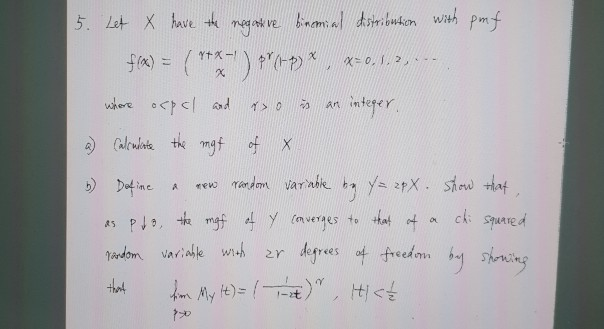 5. Let X have the negative binomial distribution with pmf
f(x) = ( r+x-1 x ) p^r (1-p)^x , x=0,1,2, ...
where 0<p<1 and r>0 is an integer.
a) Calculate the mgf of X
b) Define a new random variable by Y=2pX. Show that,
as p↓0, the mgf of Y converges to that of a chi squared
random variable with 2r degrees of freedom by showing
that lim p→0 My(t) = ( 1/1-2t )^r , |t|<1/2